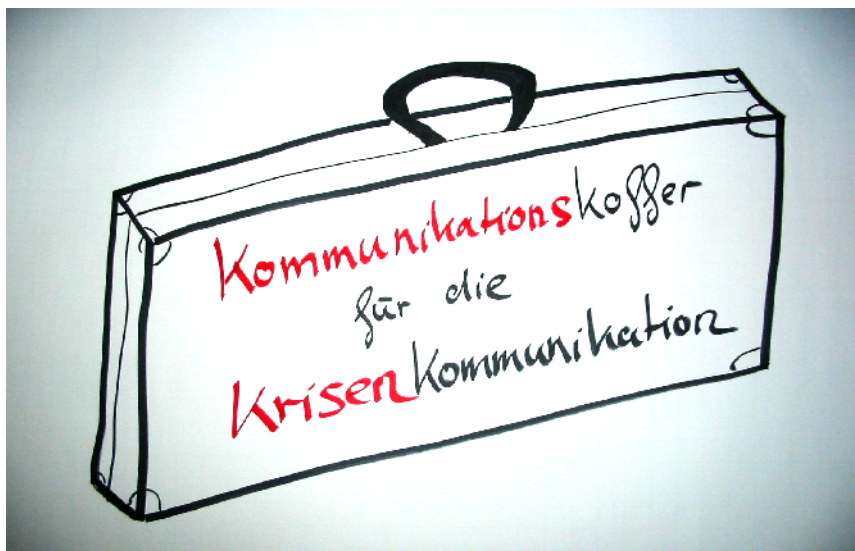 Kommunikationskoffer
für die
Krisenkommunikation